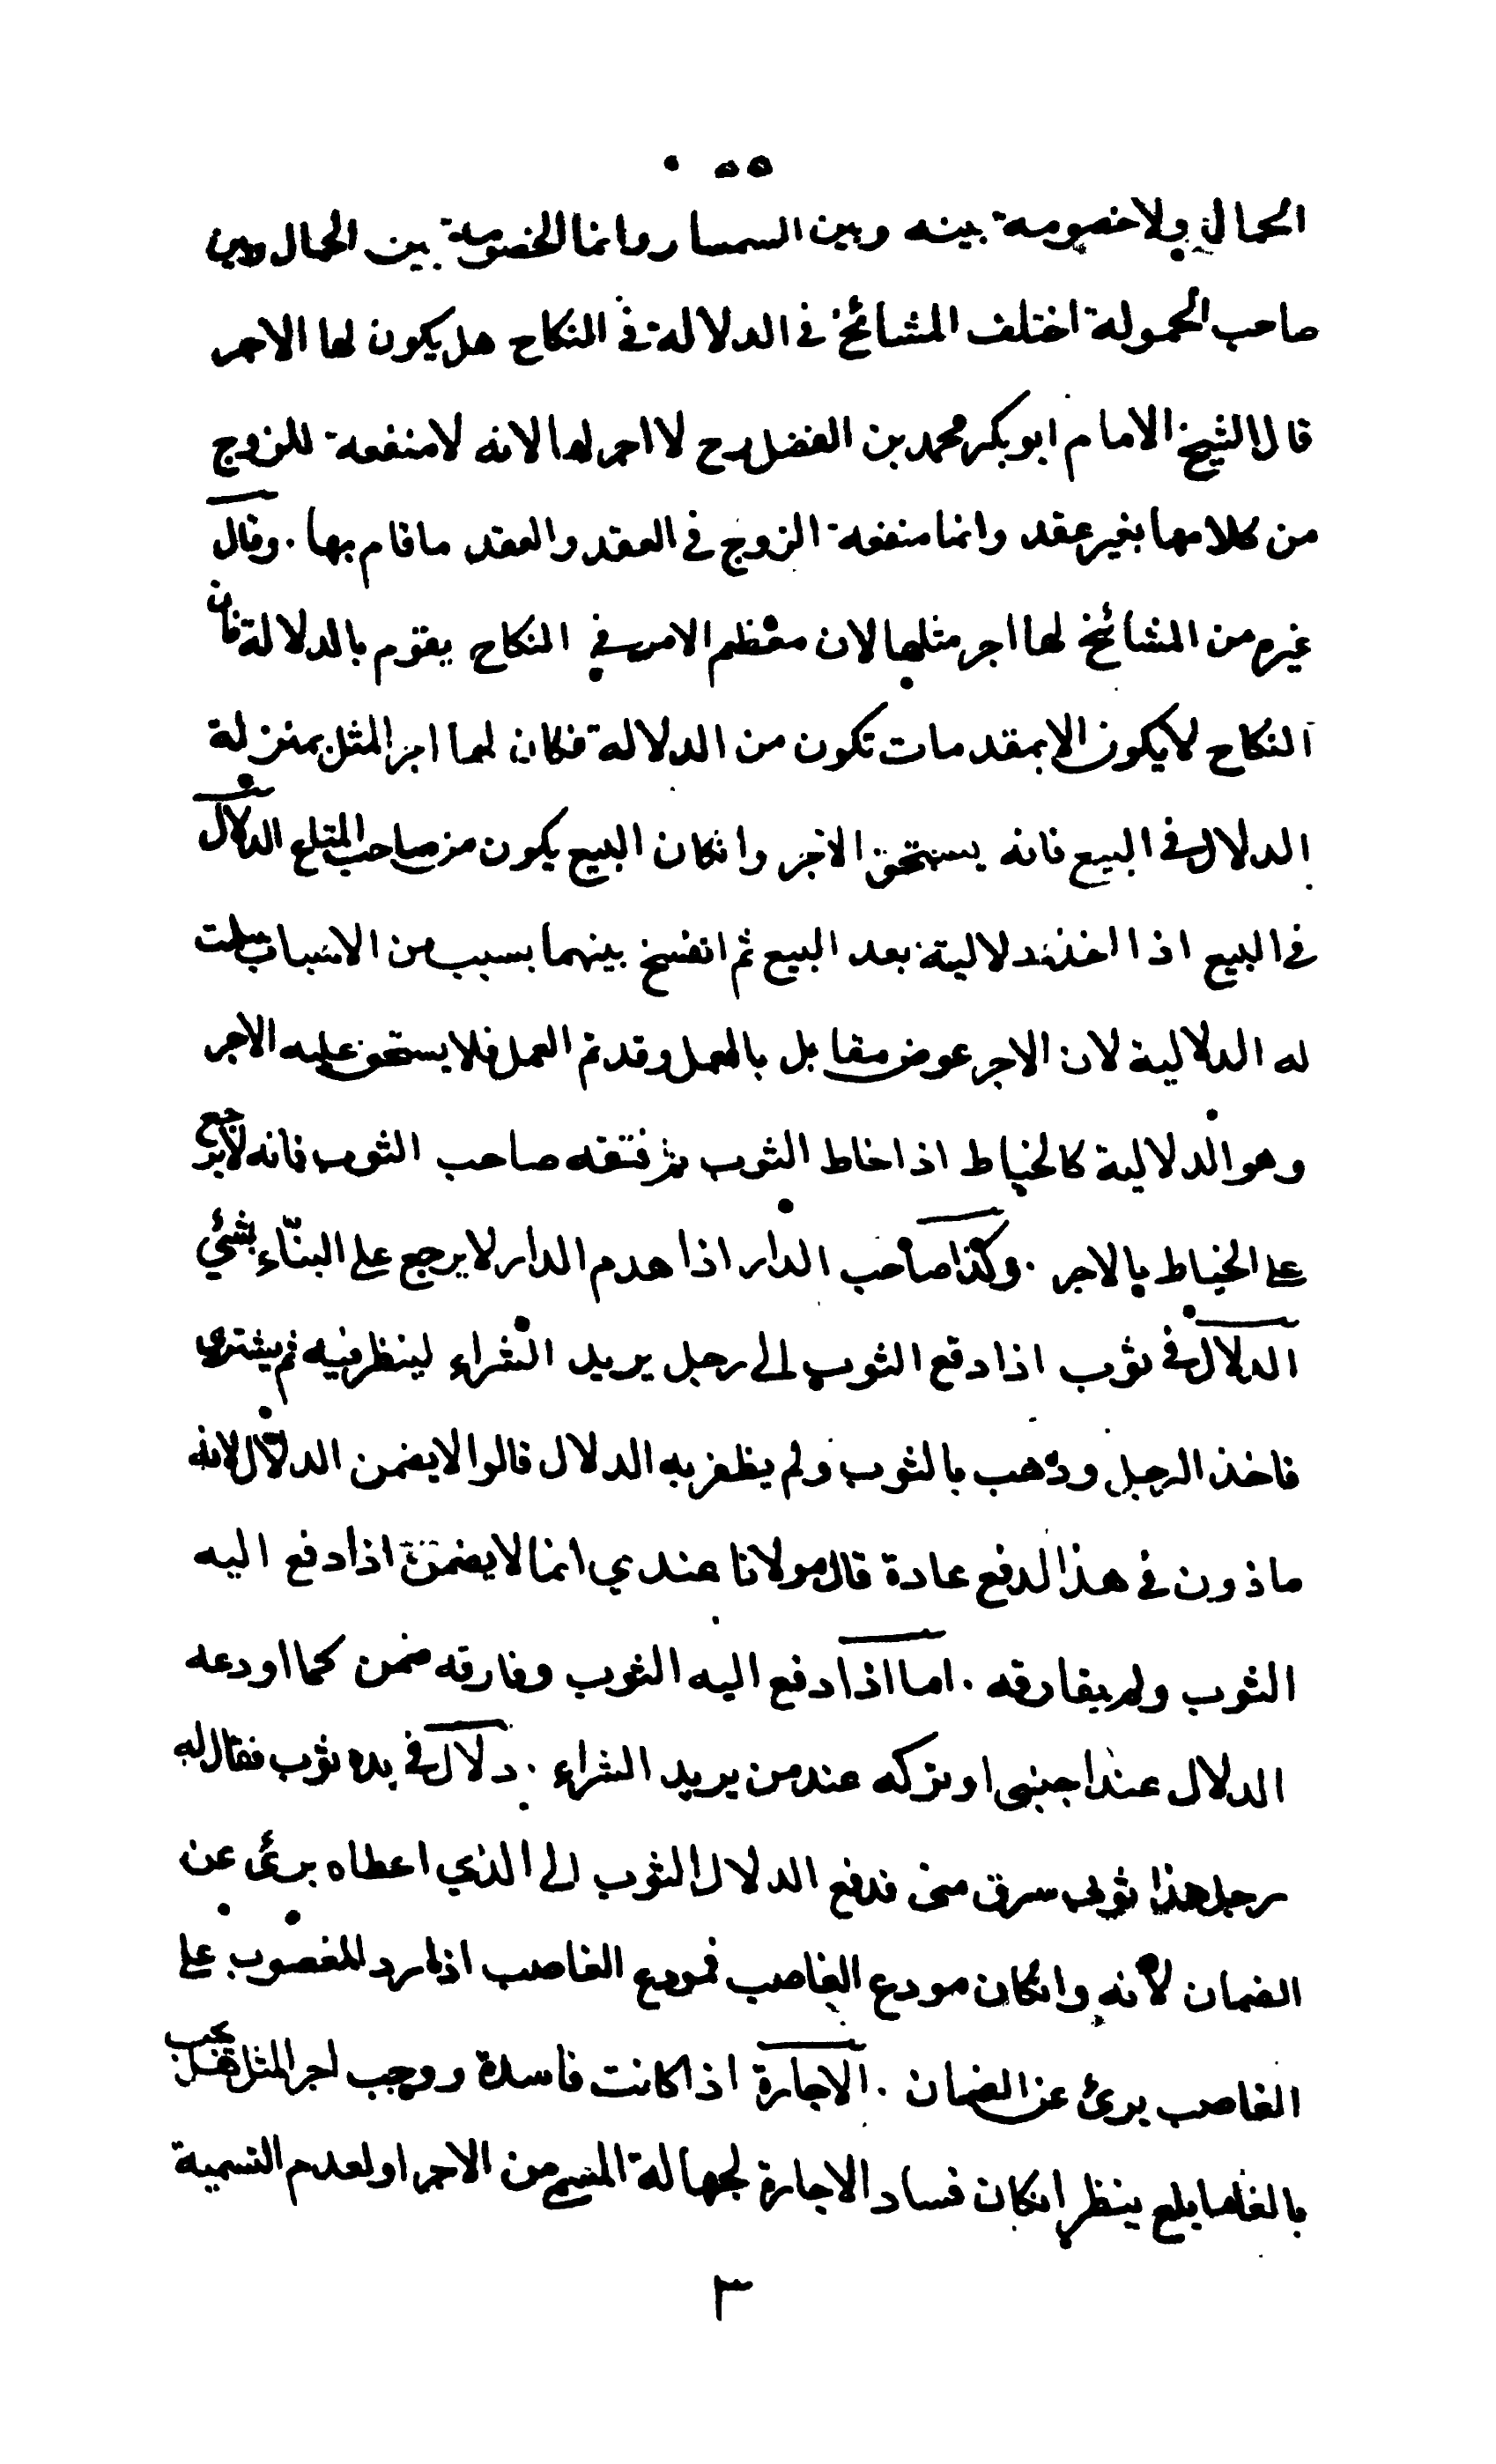 الحمال ولا خصومة بينه وبين السمسار وانما الخصومة بين الحمال وبين
صاحب الحمولة اختلف المشائخ في الدلالة في النكاح هل يكون لها الاجر
قال الشيخ الامام ابو بكر محمد بن الفضل رح لا اجر لها لانه لا منفعة للزوج
من كلامها بغير عقد وانما منفعة الزوج في العقد والعقد ما قام بها . وقال
غيره من المشائخ لها اجر مثلها لان معظم الامر في النكاح يقوم بالدلالة فان
النكاح لا يكون الا بمقدمات تكون من الدلالة فكان لها اجر المثل بمنزلة
الدلال في البيع فانه يستحق الاجر وانكان البيع يكون من صاحب المتاع الدلال
في البيع اذا اخذ دلالية بعد البيع ثم انفسخ بينهما بسبب من الاسباب سلمت
له الدلالية لان الاجر عوض مقابل بالعمل وقد تم العمل فلا يستحق عليه الاجر
وهو الدلالية كالخياط اذا خاط الثوب ثم فتقه صاحب الثوب فانه لا يرجع
على الخياط بالاجر . وكذا صاحب الدار اذا هدم الدار لا يرجع على البنّاء بشئي
الدلال في ثوب اذا دفع الثوب الى رجل يريد الشراء لينظر فيه ثم يشتري
فاخذ الرجل وذهب بالثوب ولم يظفر به الدلال قالوا لا يضمن الدلال لانه
ماذون في هذا لدفع عادة قال مولانا عندي انما لا يضمن اذا دفع اليه
الثوب ولم يفارقه . اما اذا دفع اليه الثوب وفارقه ضمن كما اودعه
الدلال عند اجنبي او تركه عند من يريد الشراء . دلال في يده ثوب فقال له
رجل هذا ثوبي سرق مني فدفع الدلال الثوب الى الذي اعطاه برئ عن
الضمان لانه وانكان مودع الغاصب فمودع الغاصب اذا رد المغصوب على
الغاصب برئ عن الضمان . الاجارة اذا كانت فاسدة ووجب اجر المثل هل يجب
بالغا ما بلغ ينظر انكان فساد الاجارة لجهالة المسمى من الاجر او لعدم التسمية
٣